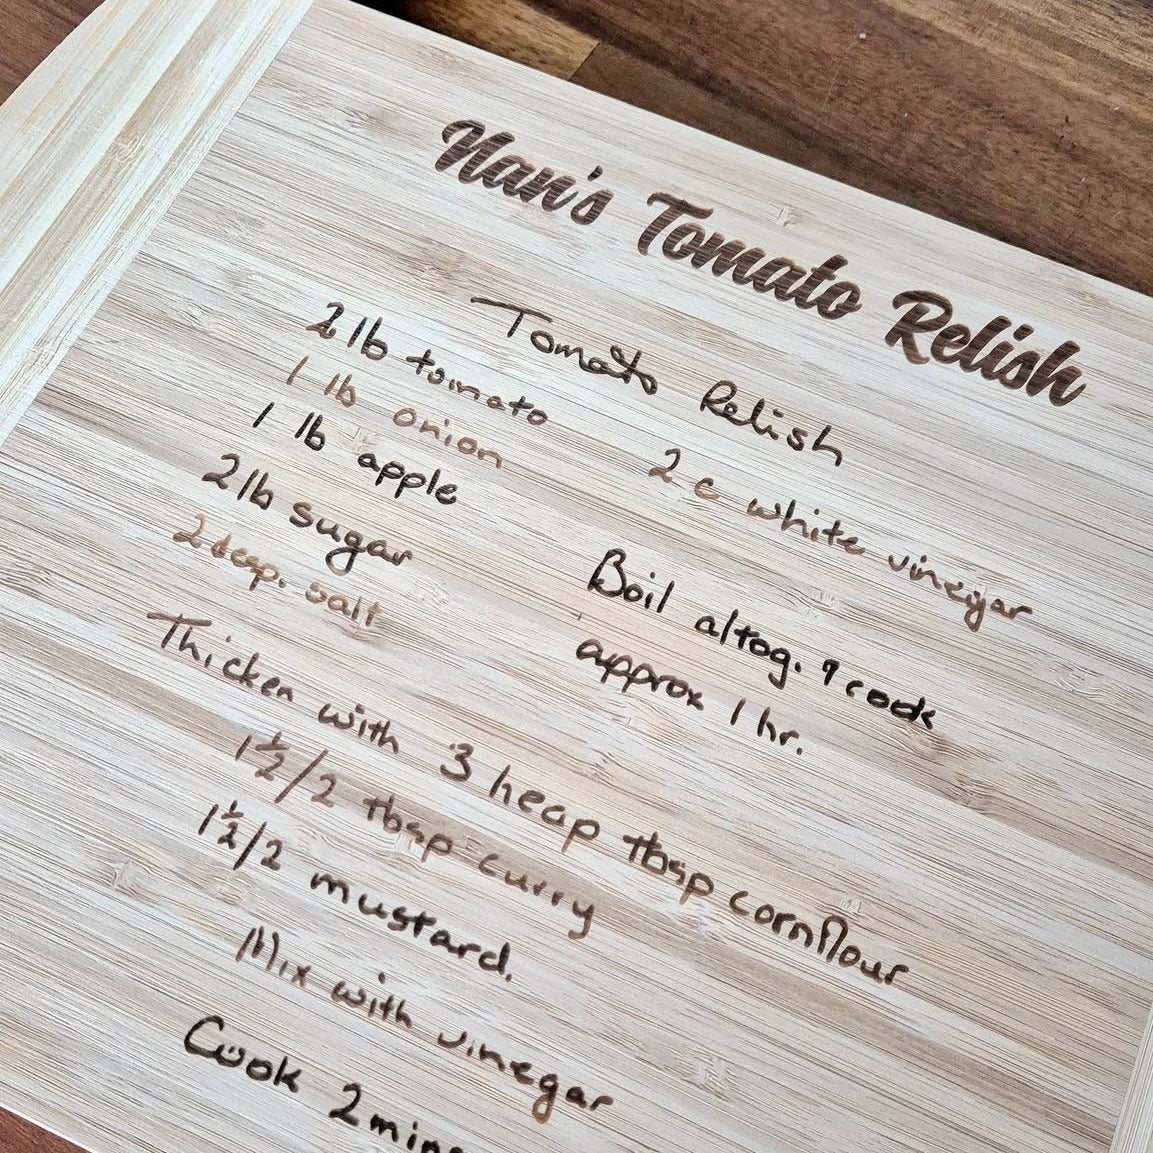 Nan's Tomato Relish
Tomato Relish
2 lb tomato
1 lb onion
1 lb apple
2 lb sugar
2 desp. salt
2 c white vinegar
Boil altog. & cook
approx 1 hr.
Thicken with 3 heap tbsp cornflour
1½/2 tbsp curry
1½/2 mustard.
Mix with vinegar
Cook 2 mins